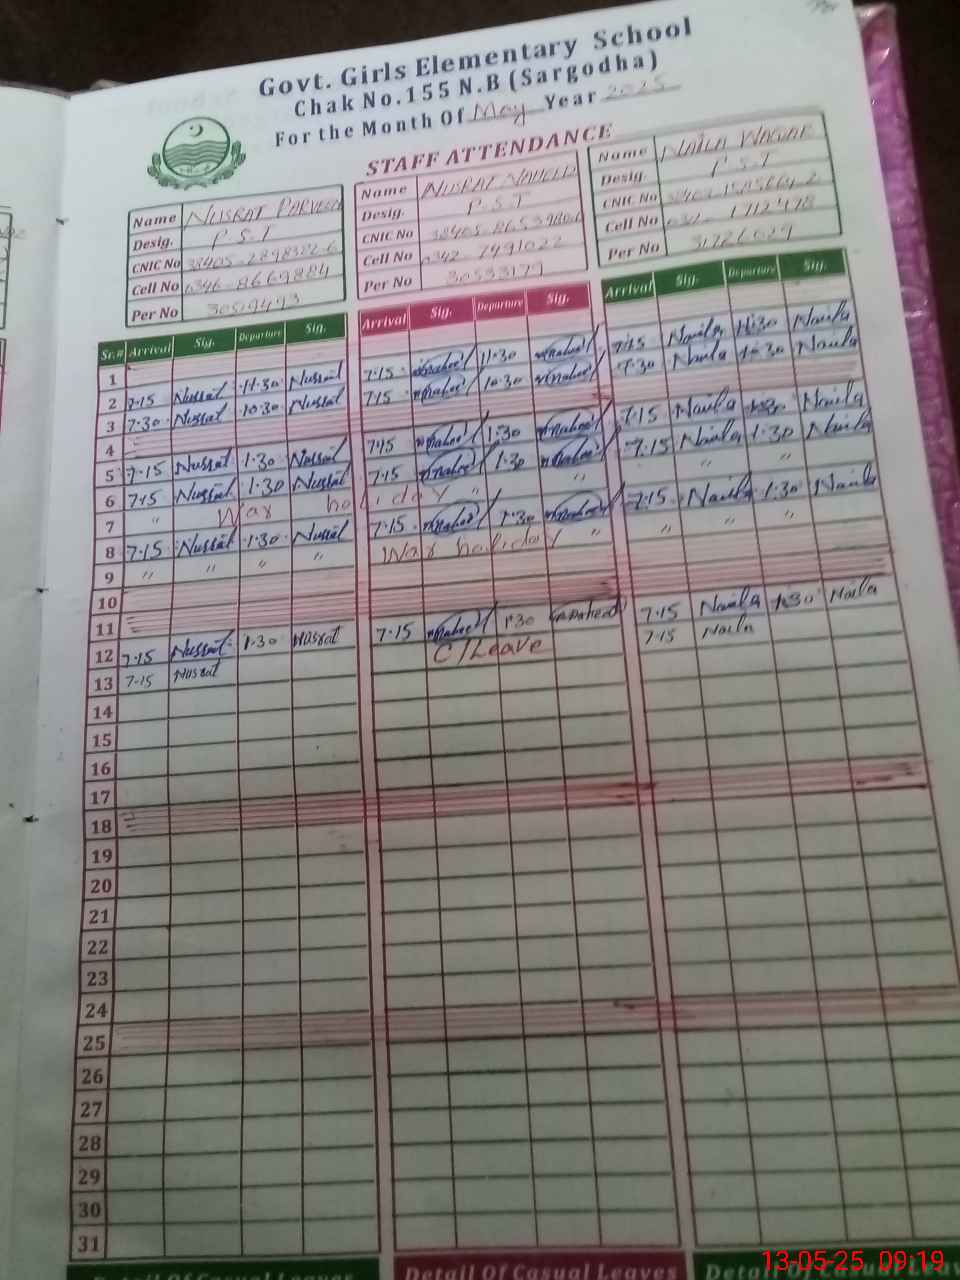 Govt. Girls Elementary School
Chak No.155 N.B (Sargodha)
For the Month Of May Year 2025
STAFF ATTENDANCE
Name NUSRAT PARVEEN
Desig. P.S.T
CNIC No
Cell No 0346-8669884
Per No 3059493
Name NUSRAT NAHEED
Desig. P.S.T
CNIC No
Cell No 0342-7491022
Per No 30533179
Name NAILA WAQAR
Desig. P.S.T
CNIC No
Cell No
Per No 31726029
Sr.# Arrival Sig. Departure Sig. Arrival Sig. Departure Sig. Arrival Sig. Departure Sig.
1
2 7-15 Nusrat 11-30 Nusrat 7-15 11-30 7-15 Naila 11-30 Naila
3 7-30 Nusrat 10-30 Nusrat 7-15 10-30 7-30 Naila 10-30 Naila
4
5 7-15 Nusrat 1-30 Nusrat 7-15 1-30 7-15 Naila 1-30 Naila
6 7-15 Nusrat 1-30 Nusrat 7-15 1-30 7-15 Naila 1-30 Naila
7 " War holiday " " " "
8 7-15 Nusrat 1-30 Nusrat 7-15 1-30 7-15 Naila 1-30 Naila
9 " " " " War holiday " " " "
10
11
12 7-15 Nusrat 1-30 Nusrat 7-15 1-30 Naheed 7-15 Naila 1-30 Naila
13 7-15 Nusrat C/Leave 7-15 Naila
14
15
16
17
18
19
20
21
22
23
24
25
26
27
28
29
30
31
Detail Of Casual Leaves Detail Of Casual Leaves Detail Of Casual Leaves
13-05-25 09:19